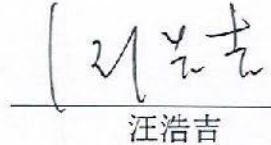 汪浩吉
汪浩吉